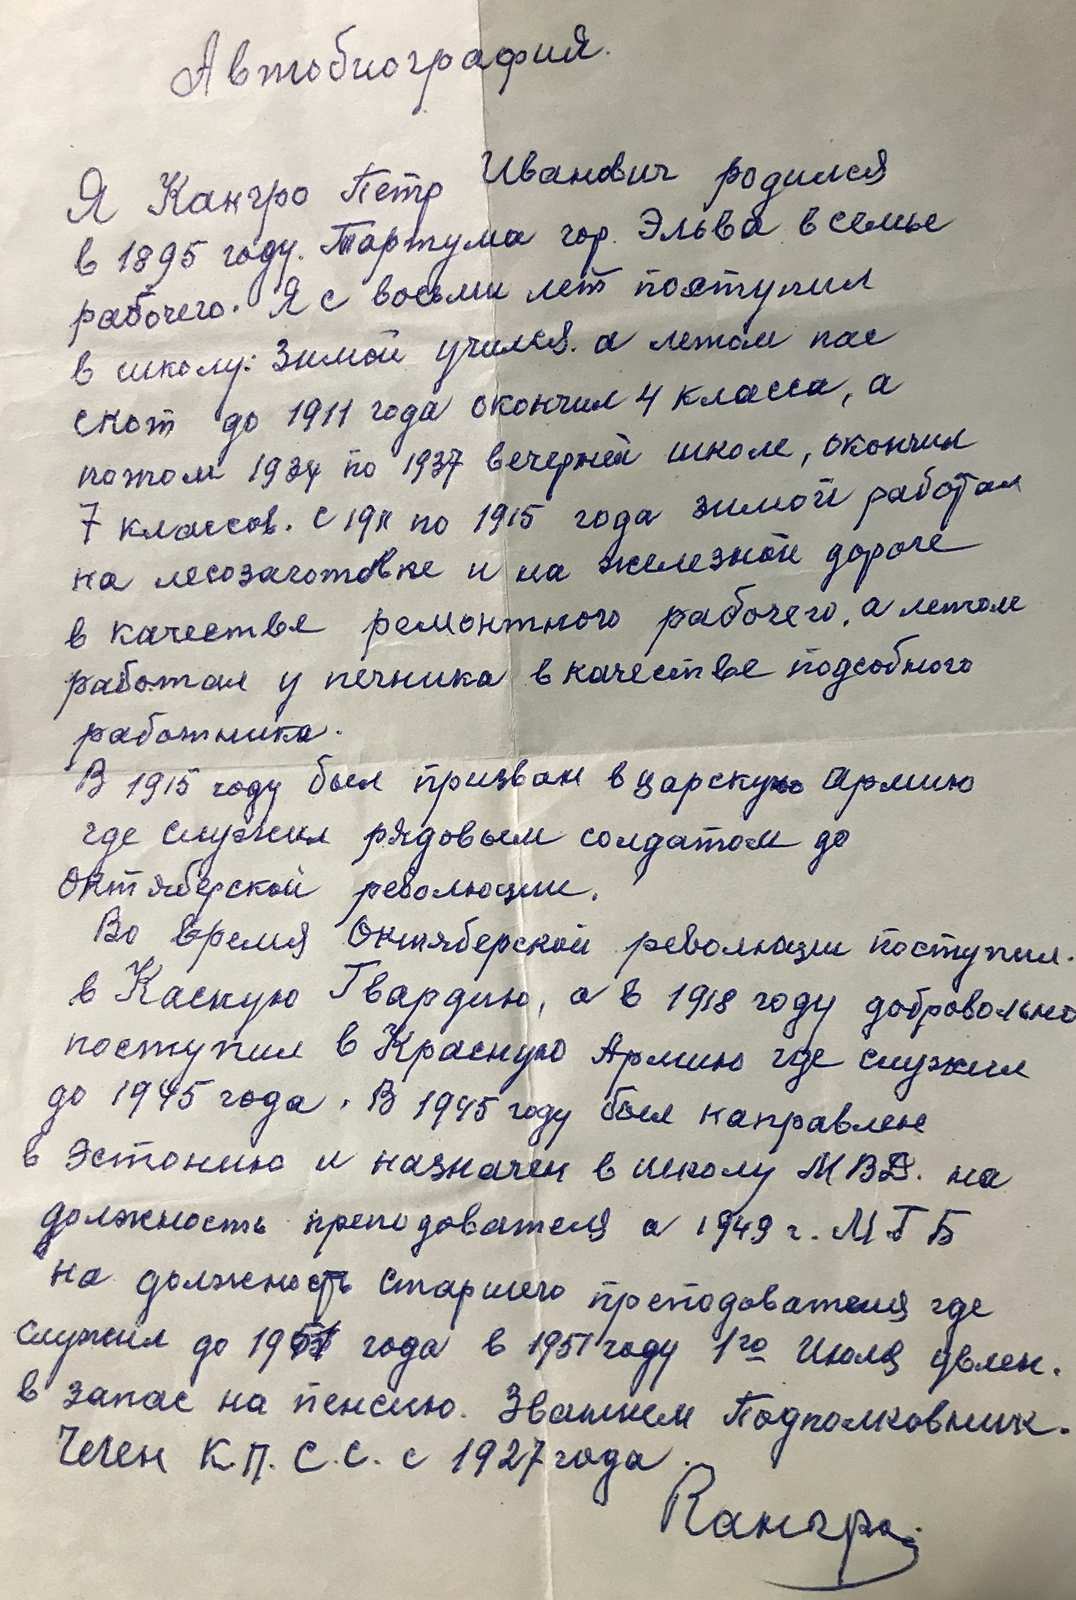 Автобиография.
Я Кангро Петр Иванович родился
в 1895 году. Тартума гор. Эльва в семье
рабочего. Я с восьми лет поступил
в школу: Зимой учился. а летом пас
скот до 1911 года окончил 4 класса, а
потом 1934 по 1937 вечерней школе, окончил
7 классов. с 1911 по 1915 года зимой работал
на лесозаготовке и на железной дороге
в качестве ремонтного рабочего, а летом
работал у печника в качестве подсобного
работника.
В 1915 году был призван в царскую армию
где служил рядовым солдатом до
Октябрьской революции.
Во время Октябрьской революции поступил.
в Каскую Гвардию, а в 1918 году добровольно
поступил в Красную Армию где служил
до 1945 года. В 1945 году был направлен
в Эстонию и назначен в школу МВД. на
должность преподователя а 1949 г. МГБ
на должность старшего преподователя где
служил до 1951 года в 1951 году 1го Июля увлен.
в запас на пенсию. Званием Подполковник.
Член К.П.С.С. с 1927 года.
Кангро